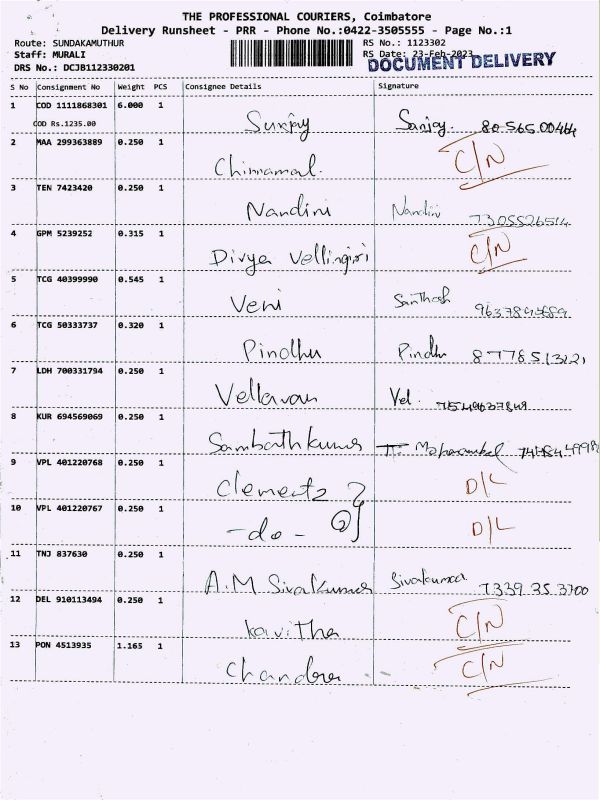 THE PROFESSIONAL COURIERS, Coimbatore
Delivery Runsheet - PRR - Phone No.:0422-3505555 - Page No.:1
Route: SUNDAKAMUTHUR RS No.: 1123302
Staff: MURALI RS Date: 23-Feb-2023
DRS No.: DCJB112330201 DOCUMENT DELIVERY
S No Consignment No Weight PCS Consignee Details Signature
1 COD 1111868301 6.000 1
COD Rs.1235.00 Sunjay Sanjay
2 MAA 299363889 0.250 1 C/N
Chinnamal.
3 TEN 7423420 0.250 1
Nandini Nandini 7305526514
4 GPM 5239252 0.315 1 C/N
Divya Vellingiri
5 TCG 40399990 0.545 1
Veni Santhosh
6 TCG 50333737 0.320 1
Pindhu Pindhu
7 LDH 700331794 0.250 1
Vellavan Vel.
8 KUR 694569069 0.250 1
Sambathkumar
9 VPL 401220768 0.250 1 D/L
Clementz
10 VPL 401220767 0.250 1 D/L
-do- 2
11 TNJ 837630 0.250 1
A.M Sivakumar Sivakumar 7339 35 3700
12 DEL 910113494 0.250 1 C/N
Kavitha
13 PON 4513935 1.165 1 C/N
Chandra